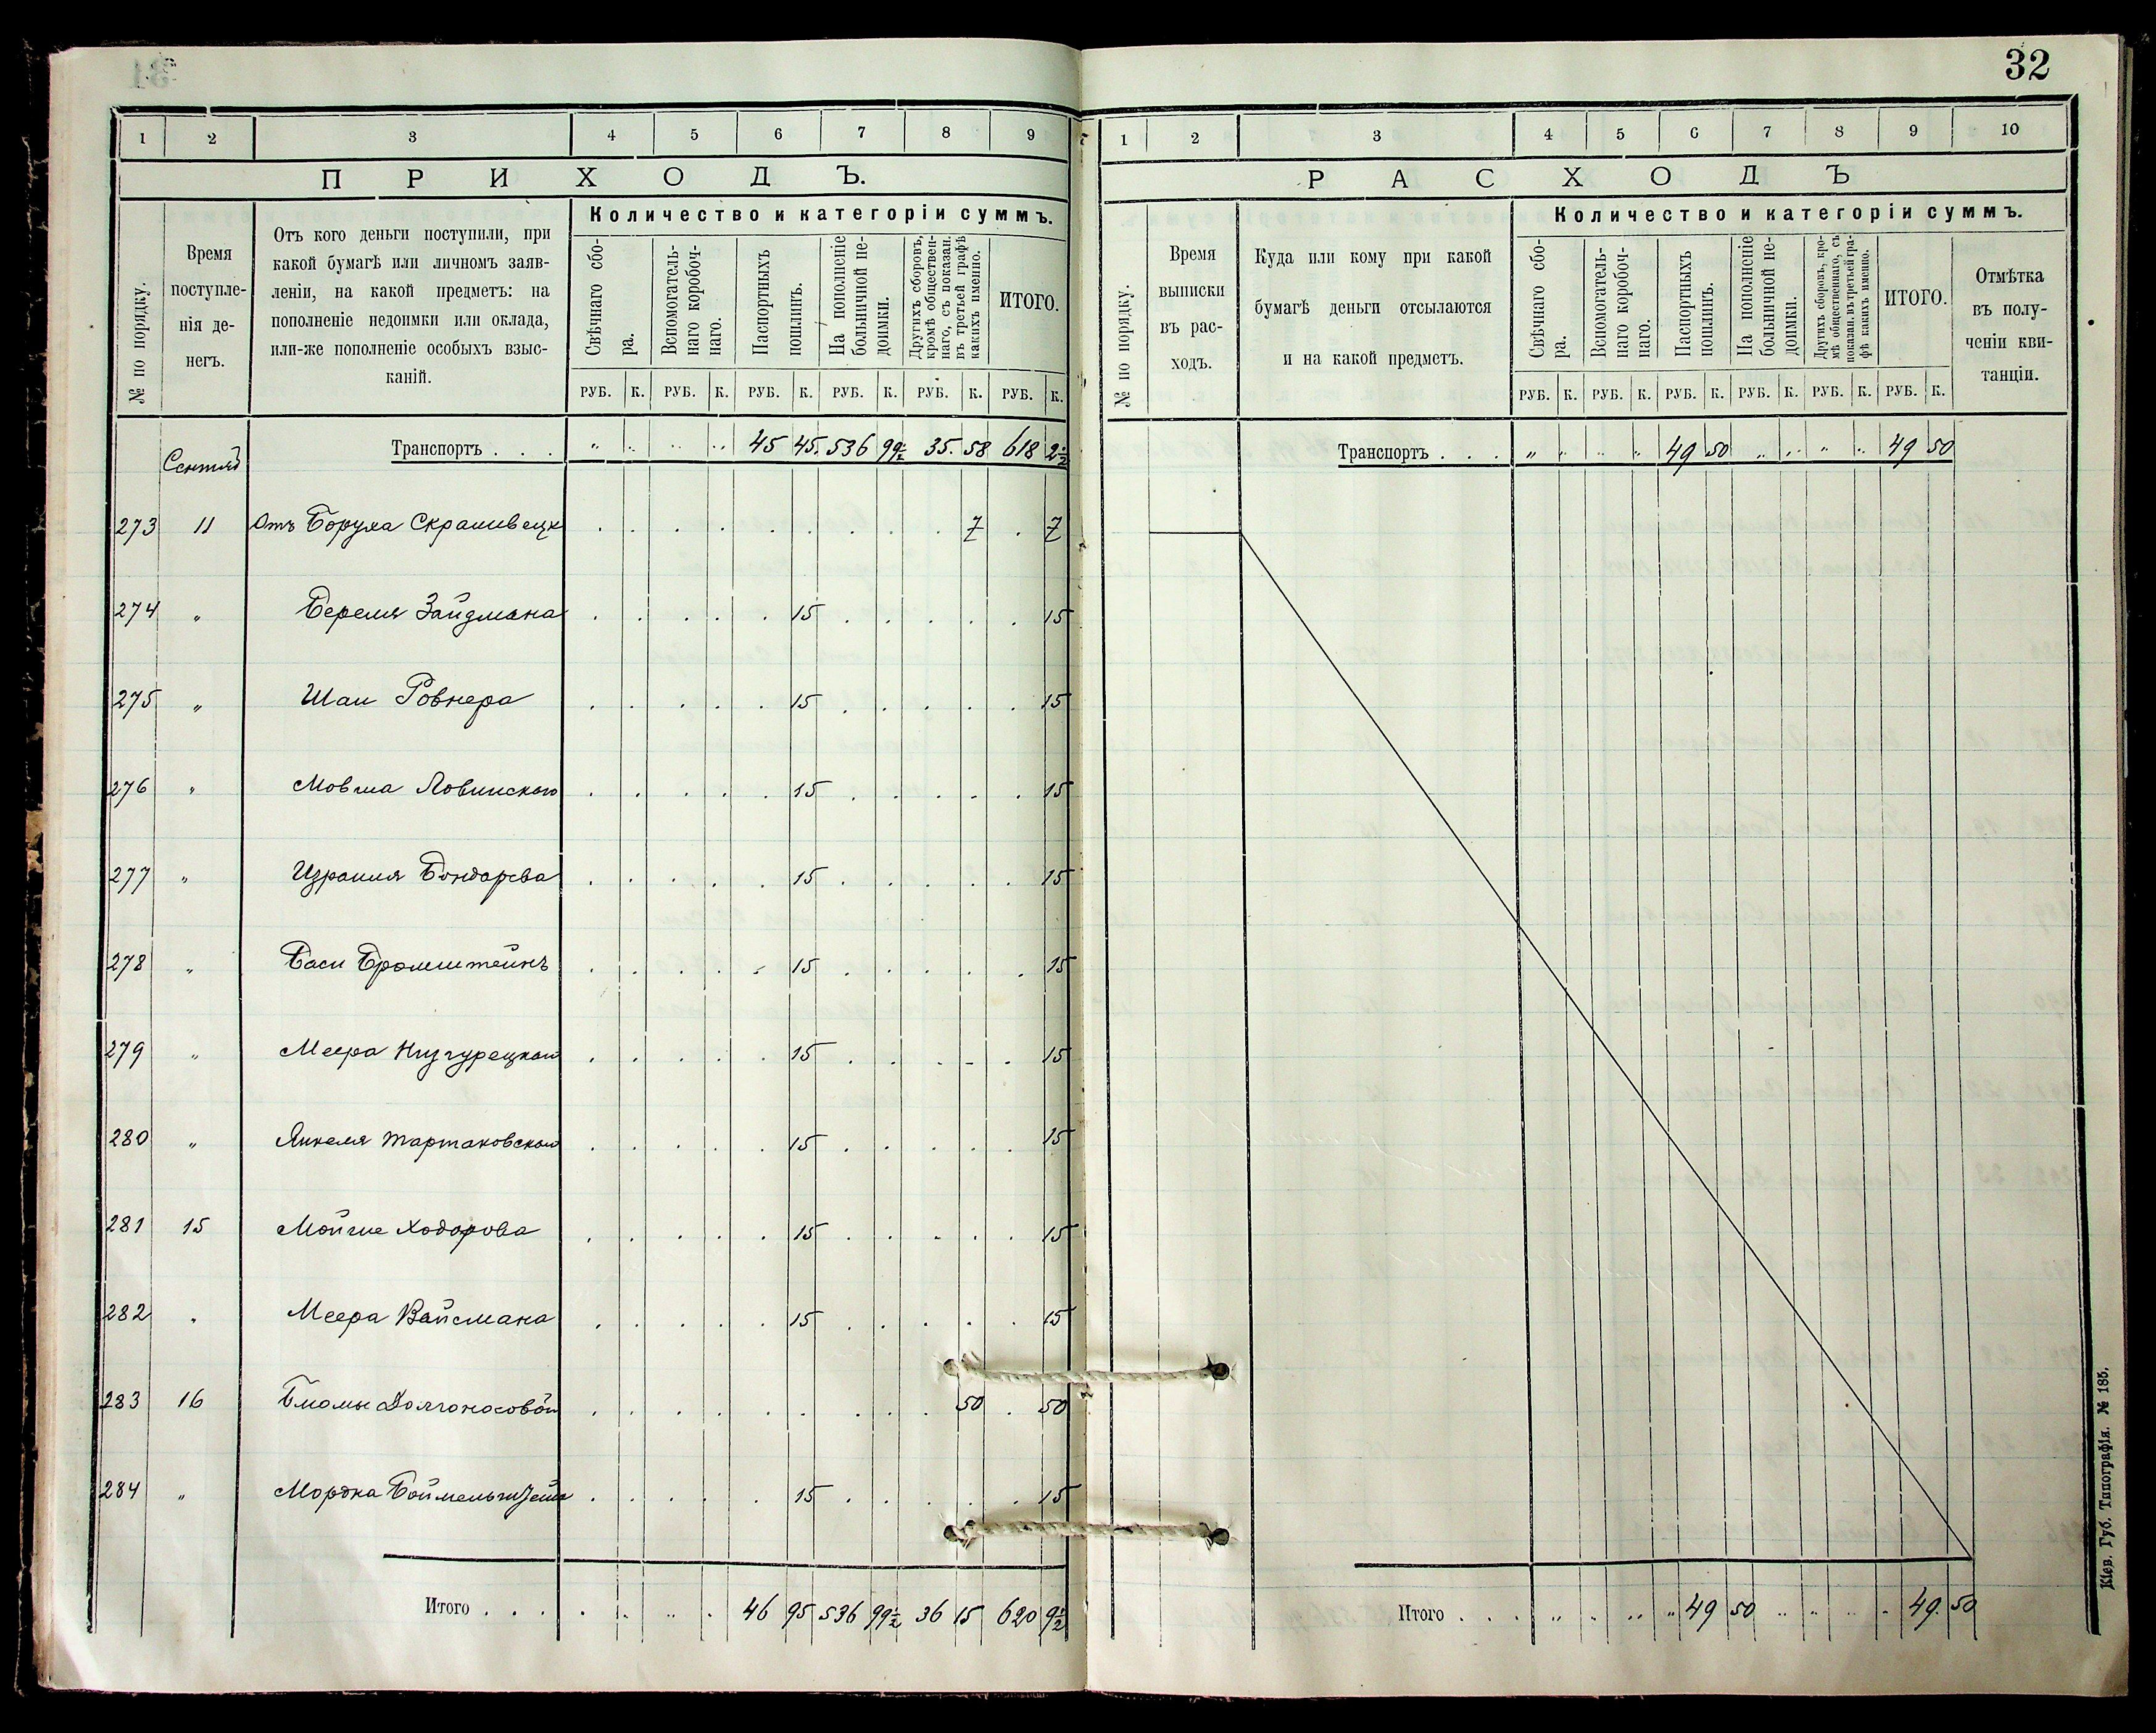 32
1 2 3 4 5 6 7 8 9
ПРИХОДЪ.
№ по порядку.
Время поступле-
нія де-
негъ.
Отъ кого деньги поступили, при
какой бумагѣ или личномъ заяв-
леніи, на какой предметъ: на
пополненіе недоимки или оклада,
или-же пополненіе особыхъ взыс-
каній.
Количество и категоріи суммъ.
Свѣчнаго сбо-
ра.
Вспомогатель-
наго коробоч-
наго.
Паспортныхъ
пошлинъ.
На пополненіе
больничной не-
доимки.
Другихъ сборовъ,
кромѣ обществен-
наго, съ показан.
въ третьей графѣ
какихъ именно.
ИТОГО.
РУБ. К. РУБ. К. РУБ. К. РУБ. К. РУБ. К. РУБ. К.
Транспортъ . . . " " " " 45 45. 536 99½ 35. 58 618 2½
273 11 Отъ Боруха 7 7
274 " Береля Зайдмана 15 15
275 " Шаи Ровнера 15 15
276 " Мовша 15 15
277 " Израиля Бондарева 15 15
278 " Баси Бромштейнъ 15 15
279 " Меера 15 15
280 " Янкеля Тартаковскаго 15 15
281 15 Мойше Ходорова 15 15
282 " Меера Вайсмана 15 15
283 16 Долгоносовой 50 50
284 " Мордка 15 15
Итого . . . 46 95 536 99½ 36 15 620 9½
1 2 3 4 5 6 7 8 9 10
РАСХОДЪ
№ по порядку.
Время
выписки
въ рас-
ходъ.
Куда или кому при какой
бумагѣ деньги отсылаются
и на какой предметъ.
Количество и категоріи суммъ.
Свѣчнаго сбо-
ра.
Вспомогатель-
наго коробоч-
наго.
Паспортныхъ
пошлинъ.
На пополненіе
больничной не-
доимки.
Другихъ сборовъ, кро-
мѣ общественнаго, съ
показан. въ третьей гра-
фѣ какихъ именно.
ИТОГО.
Отмѣтка
въ полу-
ченіи кви-
танціи.
РУБ. К. РУБ. К. РУБ. К. РУБ. К. РУБ. К. РУБ. К.
Транспортъ . . . " " " " 49 50 " " " " 49 50
Итого . . . " " " " 49 50 " " " " 49. 50
Кіев. Губ. Типографія. № 185.